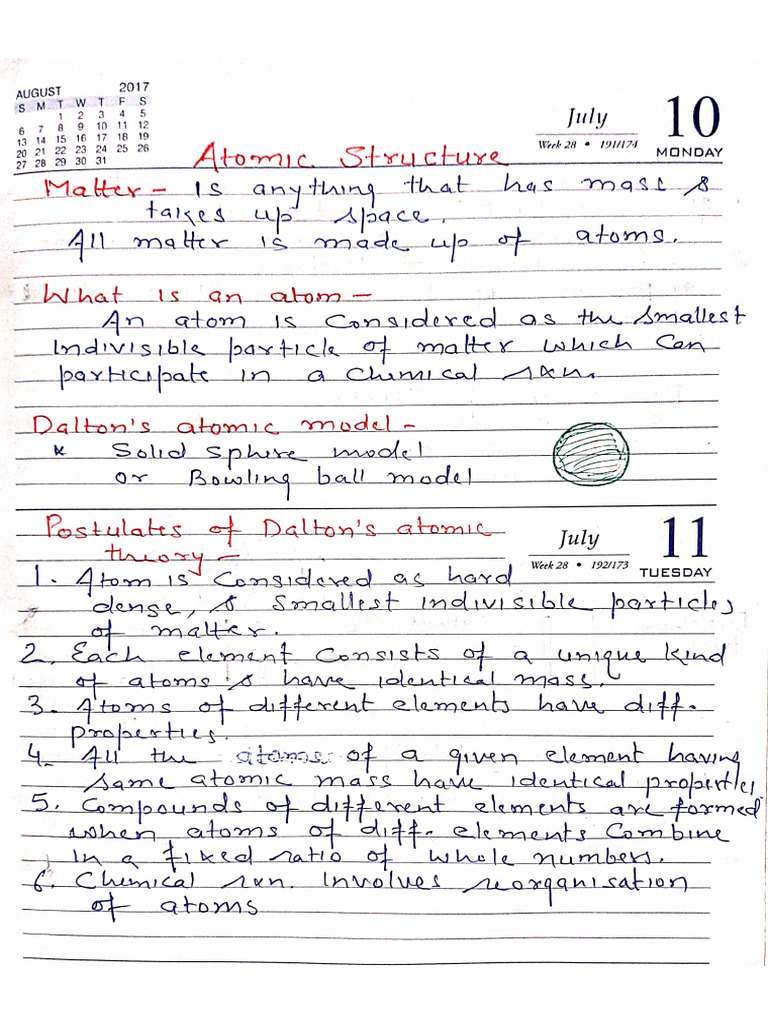 AUGUST 2017
S M T W T F S
1 2 3 4 5
6 7 8 9 10 11 12
13 14 15 16 17 18 19
20 21 22 23 24 25 26
27 28 29 30 31
July 10
Week 28 • 191/174 MONDAY
Atomic Structure
Matter - Is anything that has mass &
takes up space.
All matter is made up of atoms.
What is an atom -
An atom is considered as the smallest
indivisible particle of matter which can
participate in a chemical rxn.
Dalton's atomic model -
* Solid sphire model
or Bowling ball model
Postulates of Dalton's atomic
theory -
July 11
Week 28 • 192/173 TUESDAY
1. Atom is considered as hard
dense, & smallest indivisible particles
of matter.
2. Each element consists of a unique kind
of atoms & have identical mass.
3. Atoms of different elements have diff.
properties.
4. All the atoms of a given element having
same atomic mass have identical properties
5. Compounds of different elements are formed
when atoms of diff. elements combine
in a fixed ratio of whole numbers.
6. Chemical rxn. involves reorganisation
of atoms